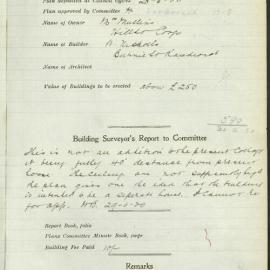 Plan deposited at Council Offices
Plan approved by Committee
Name of Owner Mrs Mullins
Hill St Coop
Name of Builder
Burnie St Randwick
Name of Architect
Value of Buildings to be erected about £250
Building Surveyor's Report to Committee
This is not an addition to the present Cottage
it being fully 40' distance from present
house. The ceilings are not sufficiently high
the plan gives one the idea that the building
is intended to be a separate house. I cannot re
for app.
Report Book, folio
Plans Committee Minute Book, page
Building Fee Paid
Remarks